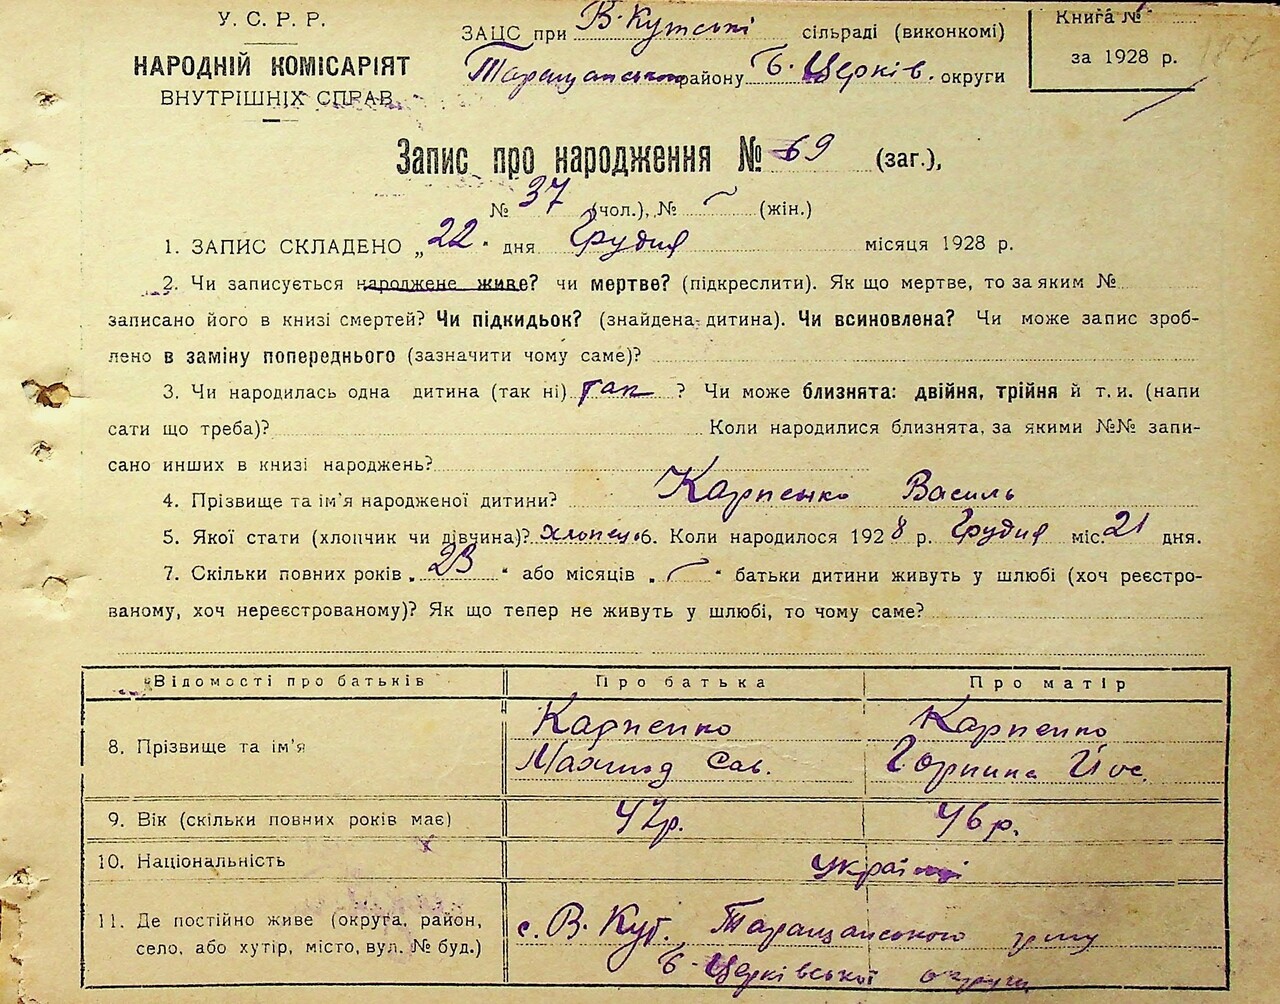 У. С. Р. Р.
НАРОДНІЙ КОМІСАРІЯТ
ВНУТРІШНІХ СПРАВ
ЗАЦС при В-Кутські сільраді (виконкомі)
Таращанськ району Б-Церків. округи
Книга №
за 1928 р.
187
Запис про народження № 69 (заг.),
№ 37 (чол.), № — (жін.)
1. ЗАПИС СКЛАДЕНО „22" дня Грудня місяця 1928 р.
2. Чи записується народжене живе? чи мертве? (підкреслити). Як що мертве, то за яким №
записано його в книзі смертей? Чи підкидьок? (знайдена дитина). Чи всиновлена? Чи може запис зроб-
лено в заміну попереднього (зазначити чому саме)?
3. Чи народилась одна дитина (так ні) так ? Чи може близнята: двійня, трійня й т. и. (напи
сати що треба)? Коли народилися близнята, за якими №№ запи-
сано инших в книзі народжень?
4. Прізвище та ім'я народженої дитини? Карпенко Василь
5. Якої стати (хлопчик чи дівчина)? хлопець 6. Коли народилося 1928 р. Грудня міс. 21 дня.
7. Скільки повних років „23" або місяців „—" батьки дитини живуть у шлюбі (хоч реєстро-
ваному, хоч нереєстрованому)? Як що тепер не живуть у шлюбі, то чому саме?
Відомості про батьків Про батька Про матір
8. Прізвище та ім'я Карпенко Сав. Карпенко Горпина Йос.
9. Вік (скільки повних років має) 47р. 46 р.
10. Національність
11. Де постійно живе (округа, район,
село, або хутір, місто, вул. № буд.)
с. В. Кут. Таращанського
Б-Церківської округи